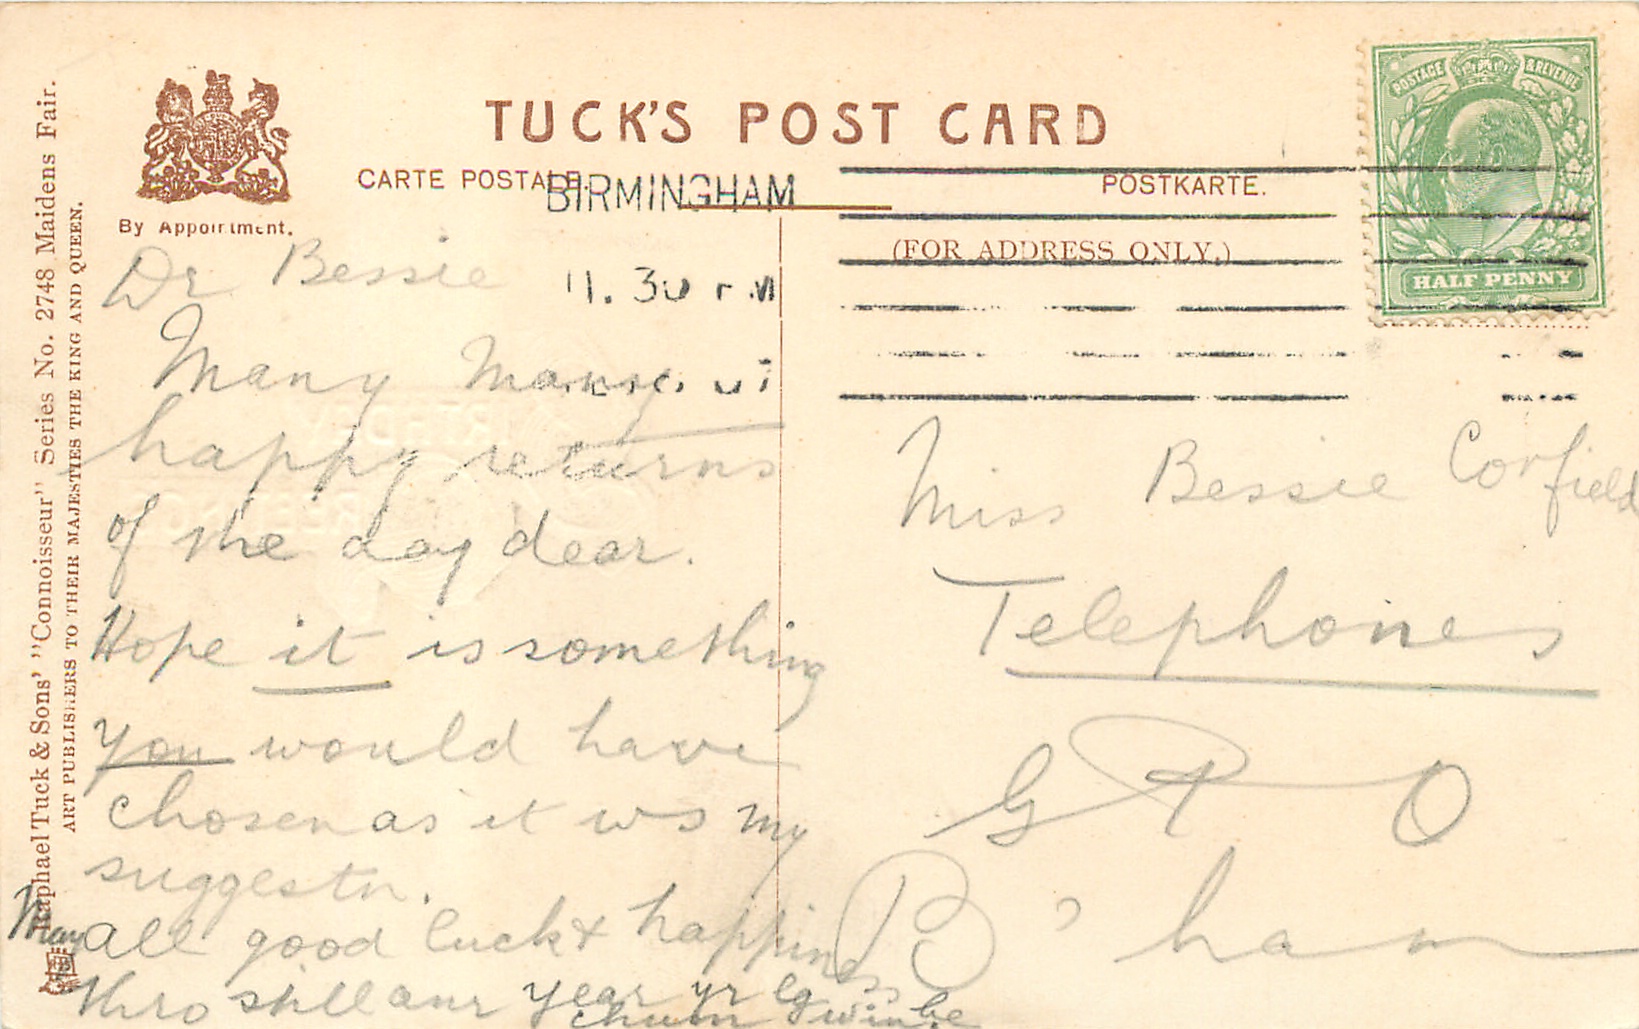 TUCK'S POST CARD
CARTE POSTALE.
POSTKARTE.
(FOR ADDRESS ONLY.)
By Appointment.
BIRMINGHAM
11.30 PM
POSTAGE & REVENUE
HALF PENNY
Raphael Tuck & Sons' "Connoisseur" Series No. 2748 Maidens Fair.
ART PUBLISHERS TO THEIR MAJESTIES THE KING AND QUEEN.
Dr Bessie
Many Many
happy returns
of the day dear.
Hope it is something
you would have
chosen as it ws my
suggestn.
May all good luck & happiness
thro still anr year yr
chum
Miss Bessie Corfield
Telephones
G P O
B'ham